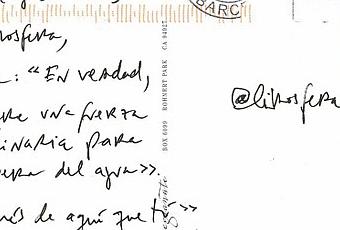 osfera,
: "En verdad,
una fuerza
inaria para
del agua>>.
de aquí que tú >>
BARC
BOX 6099 ROHNERT PARK CA 94927
@librosfera